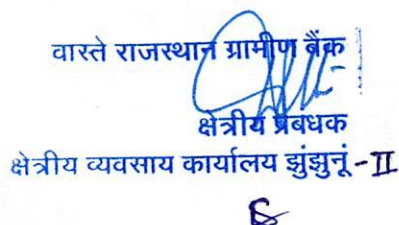 वास्ते राजस्थान ग्रामीण बैंक
क्षेत्रीय प्रबंधक
क्षेत्रीय व्यवसाय कार्यालय झुंझुनूं - II